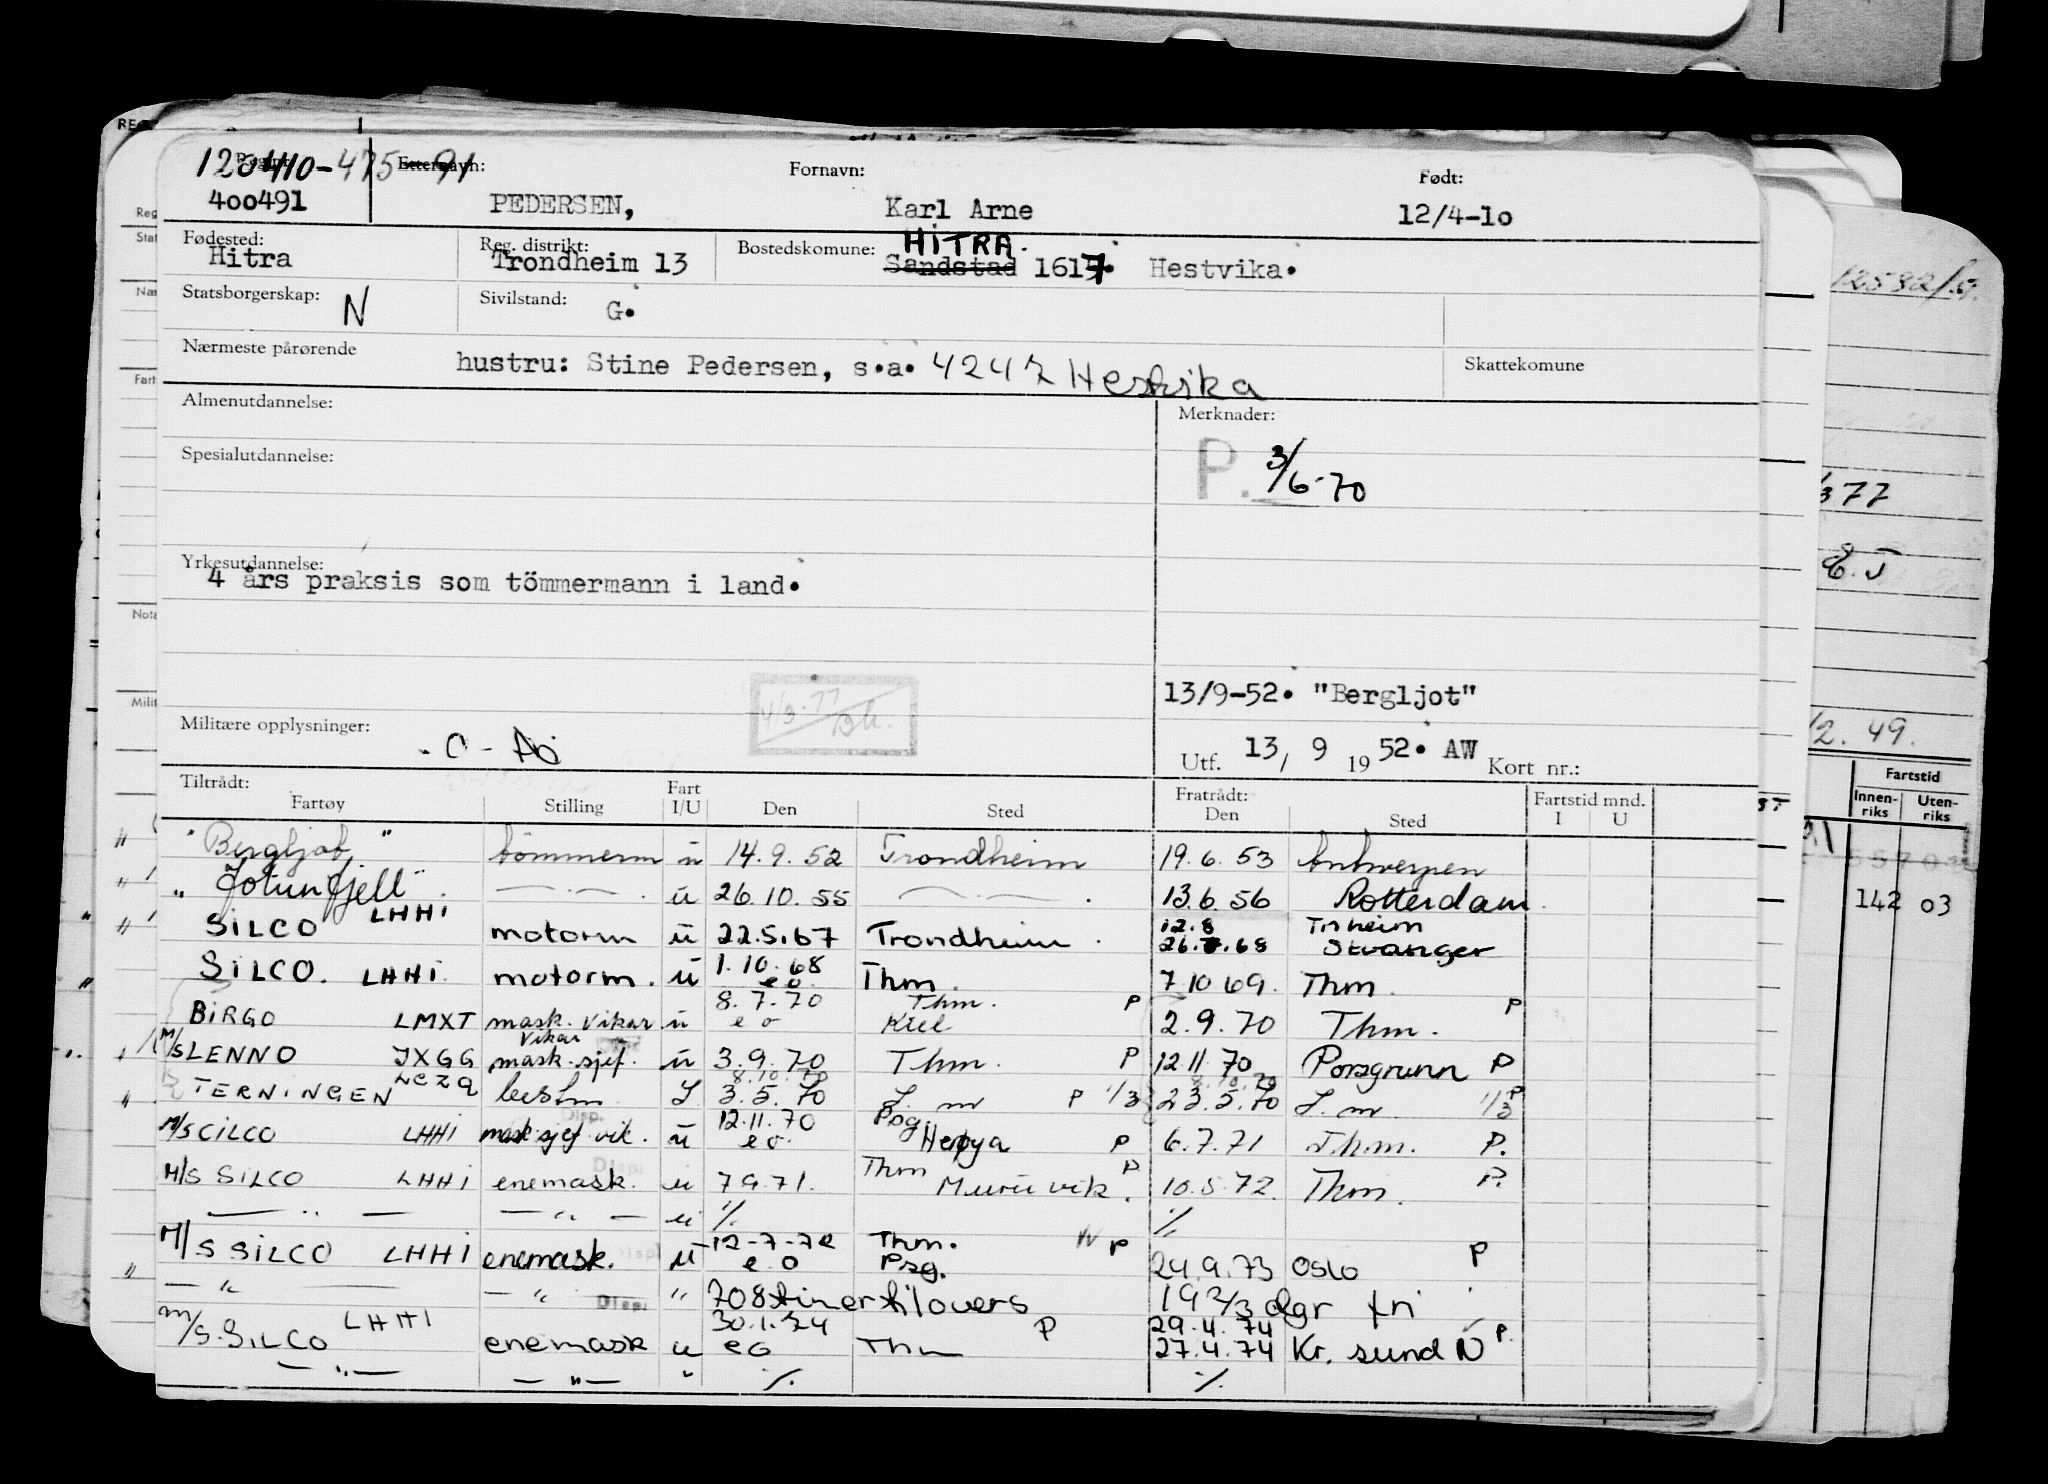 120410-47591
Etternavn: Fornavn: Født:
400491 PEDERSEN, Karl Arne 12/4-1o
Fødested: Reg. distrikt: Bostedskomune: HITRA.
Hitra Trondheim 13 Sandstad 1617 Hestvika.
Statsborgerskap: N Sivilstand: G.
Nærmeste pårørende hustru: Stine Pedersen, s.a. 4247 Hestvika Skattekomune
Almenutdannelse: Merknader:
Spesialutdannelse: P. 3/6-70
Yrkesutdannelse:
4 års praksis som tömmermann i land.
13/9-52. "Bergljot"
Militære opplysninger:
Utf. 13/ 9 1952. AW Kort nr.:
Tiltrådt: Fart Fratrådt: Fartstid mnd. Fartstid
Fartøy Stilling I/U Den Sted Den Sted I U Innen-riks Uten-riks
"Bergljot" tömmerm u 14.9.52 Trondheim 19.6.53 Antwerpen
"Jotunfjell" u 26.10.55 13.6.56 Rotterdam 142 03
SILCO LHHI motorm u 22.5.67 Trondheim 12.8 Trheim
26.7.68 Stvanger
SILCO. LHHI motorm. u 1.10.68 Thm. 7 10 69. Thm
eo
8.7.70 Thm. P P
BIRGO LMXT mask. vikar u eo Kiel 2.9.70 Thm.
vikar
M/S LENNO JXGG mask.sjef. u 3.9.70 Thm. P 12.11.70 Porsgrunn P
8.10.70 8.10.70
TERNINGEN LCZQ bestm J 3.5.70 J. m P 1/3 23.5.70 J. m 1/3 P
12.11.70 Psg.
M/S CILCO LHHI mask sjef vik. u eo Herøya P 6.7.71 Thm. P.
M/S SILCO LHHI enemask. u 7 9.71. Thm P. 10.5.72. Thm. P.
— " — — " — u ./. ./.
M/S SILCO LHHI enemask. u 12-7-72 Thm. P 24.9.73 OSLO P
eo Psg.
— " — — " — " 708 timer tilovers 19 2/3 dgr fri
30.1.74 P 29.4.74 P.
M/S. SILCO LHHI enemask u eo Thm 27.4.74 Kr. sund N
— " — — " — " ./. ./.